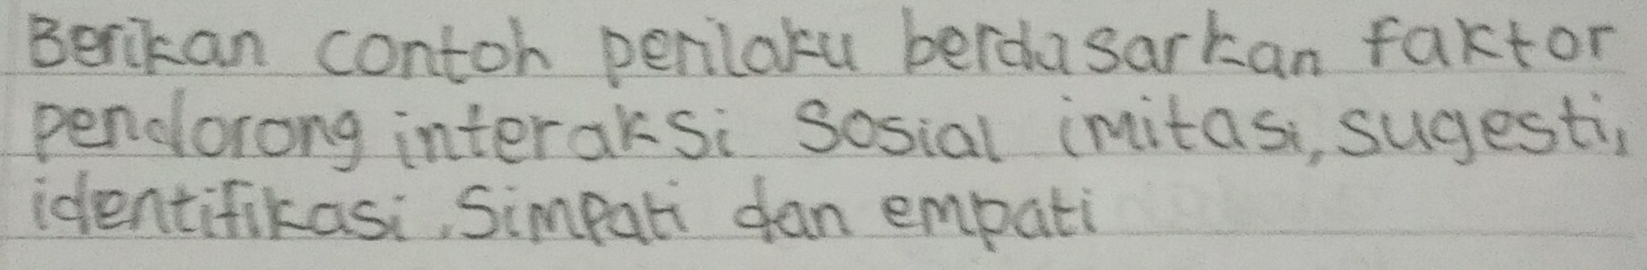 Berikan contoh perilaku berdasarkan faktor
pendorong interaksi sosial imitasi, sugesti,
identifikasi, simpati dan empati